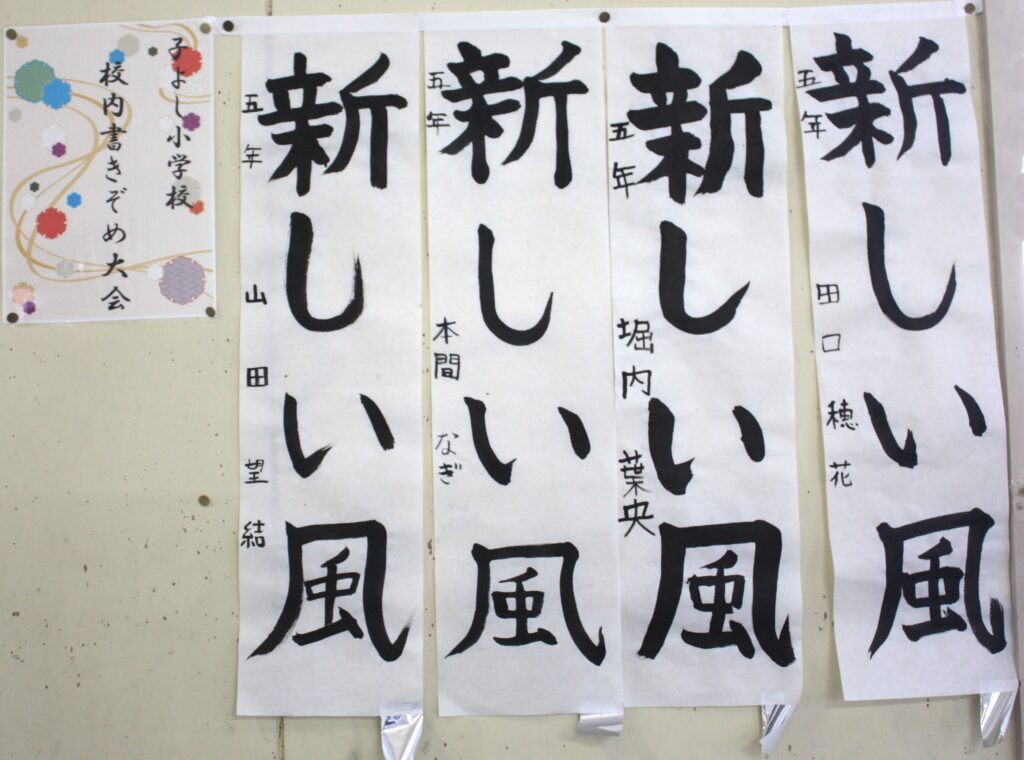 子よし小学校
校内書きぞめ大会
新しい風
五年 田口 穂花
新しい風
五年 堀内 葉央
新しい風
五年 本間 なぎ
新しい風
五年 山田 望結